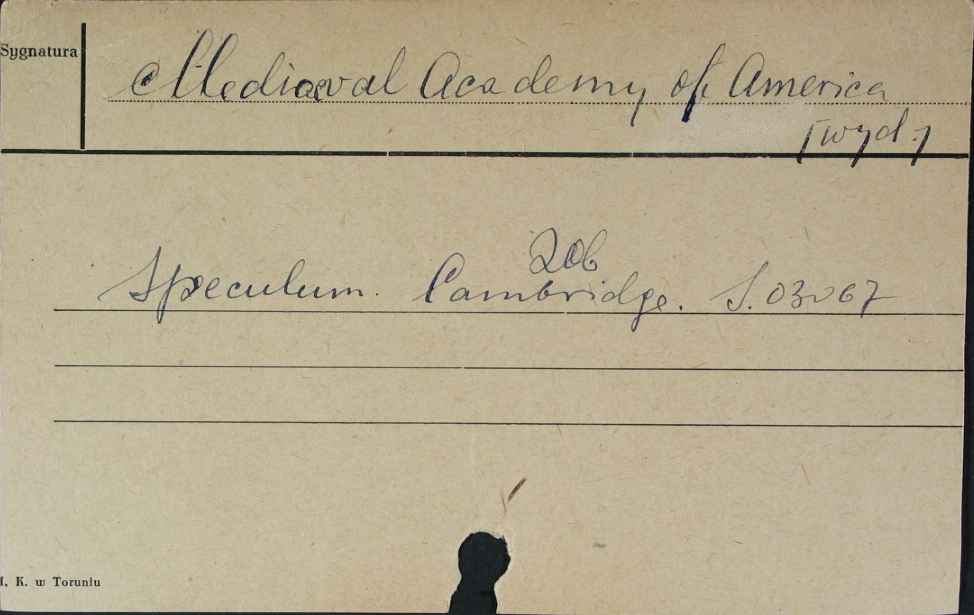 Sygnatura
Mediaeval Academy of America
[wyd.]
Zob
Speculum. Cambridge. S.03067
K. w Toruniu